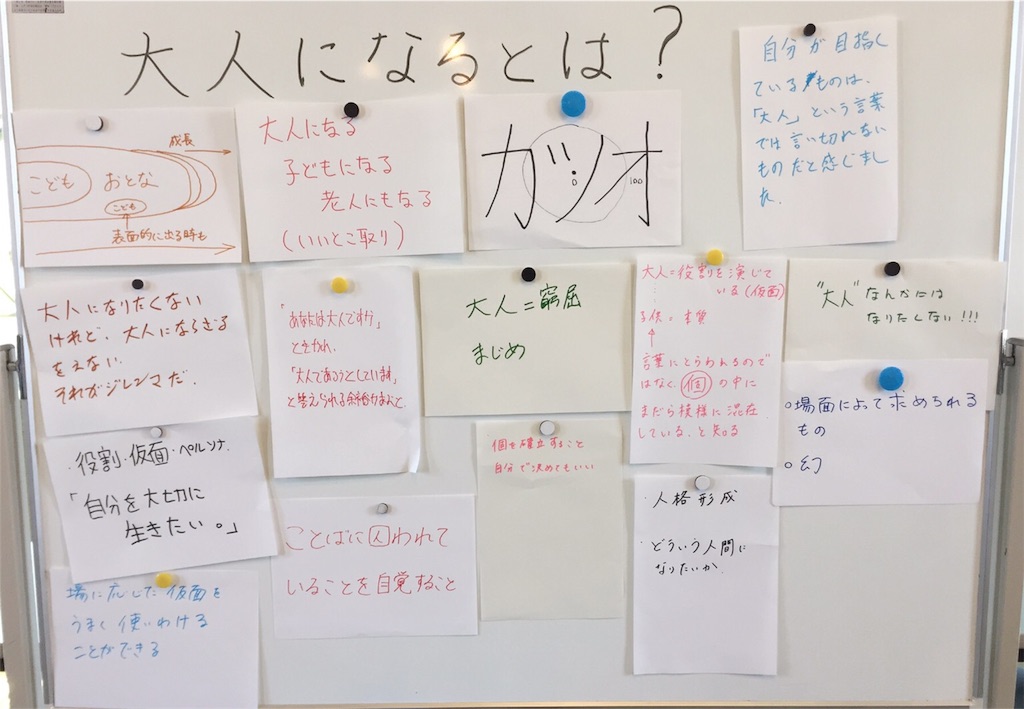 大人になるとは？
成長
こども
おとな
こども
表面的に出る時も
大人になる
子どもになる
老人にもなる
(いいとこ取り)
カツオ
0
100
自分が目指し
ているものは、
「大人」という言葉
では言い切れない
ものだと感じまし
た.
大人になりたくない
けれど、大人にならざる
をえない.
それがジレンマだ.
「あなたは大人ですか」
ときかれ、
「大人であろうとしています」
と答えられる余裕が
大人＝窮屈
まじめ
大人＝役割を演じて
いる(仮面)
子供＝本質
言葉にとらわれるので
はなく、個の中に
まだら模様に混在
している、と知る
"大人"なんかには
なりたくない!!!
・役割・仮面・ペルソナ.
「自分を大切に
生きたい。」
個を確立すること
自分で決めてもいい
○場面によって求められる
もの
○幻
ことばに囚われて
いることを自覚すること
・人格形成
・どういう人間に
なりたいか.
場に応じた仮面を
うまく使いわける
ことができる